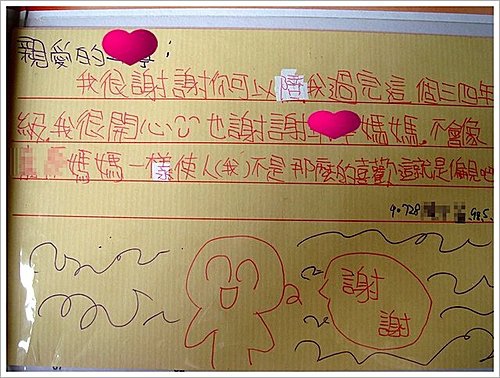 親愛的:
我很謝謝你可以陪我過完這個三四年
級,我很開心 也謝謝媽媽,不會像
媽媽一樣使人(我)不是那麼的喜歡這就是偏見吧
9.728 98.5
謝
謝